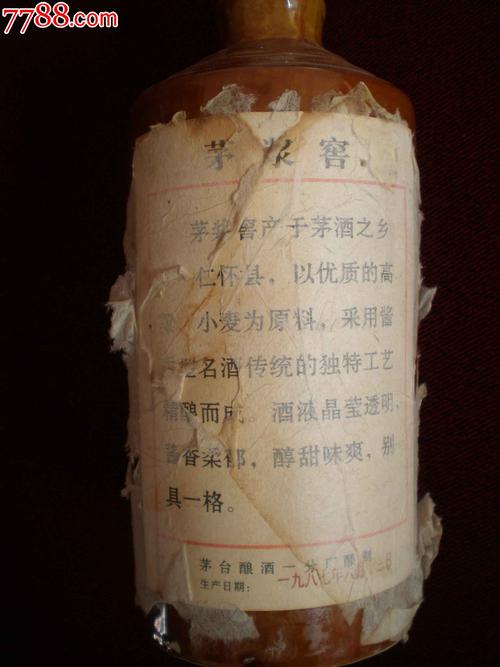 7788.com
茅浆窖
茅浆窖产于茅酒之乡
仁怀县，以优质的高
粱、小麦为原料，采用酱
香型名酒传统的独特工艺
精酿而成。酒液晶莹透明，
酱香柔和，醇甜味爽，别
具一格。
茅台酿酒一分厂酿制
生产日期：一九八七年八月十二日